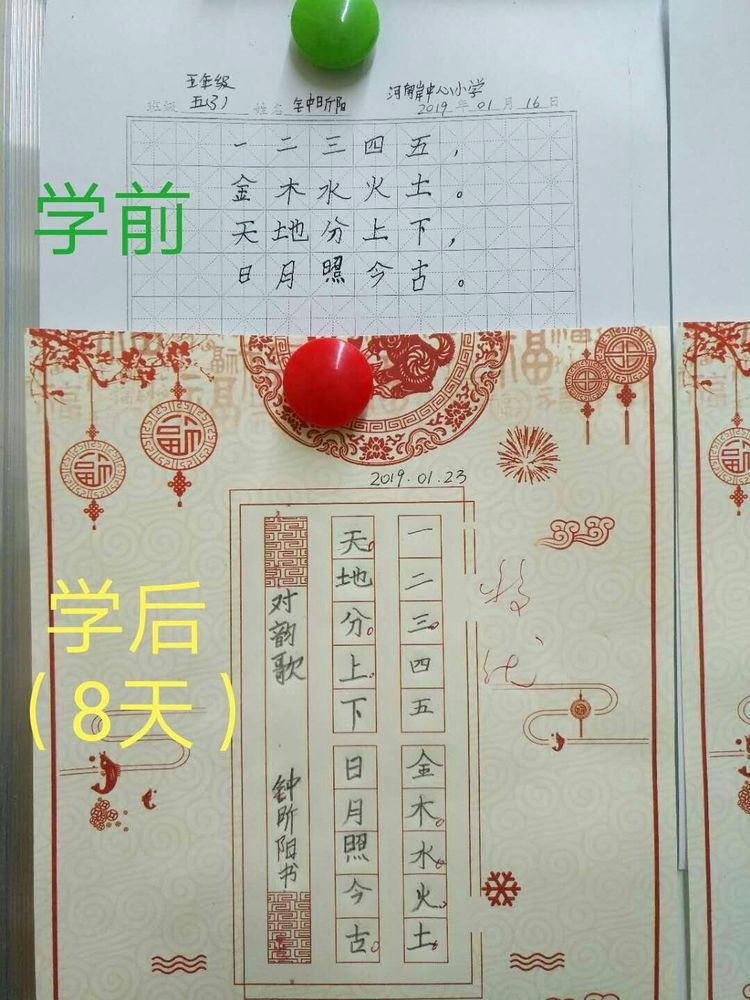 五年级
班级 五(3) 姓名 钟昕阳 河南岸中心小学 2019年01月16日
一二三四五，
金木水火土。
天地分上下，
日月照今古。
学前
福
福
2019.01.23
一二三四五 金木水火土
天地分上下 日月照今古
对韵歌 钟昕阳书
特优
学后
(8天)